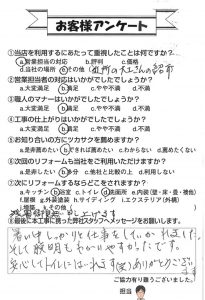 お客様アンケート
①当店を利用するにあたって重視したことは何ですか?
a.営業担当の対応 b.評判 c.価格
d.当社の場所 e.その他
②営業担当者の対応はいかがでしたでしょうか?
a.大変満足 b.満足 c.やや不満 d.不満
③職人のマナーはいかがでしたでしょうか?
a.大変満足 b.満足 c.やや不満 d.不満
④工事の仕上がりはいかがでしたでしょうか?
a.大変満足 b.満足 c.やや不満 d.不満
⑤お知り合いの方にツカサを薦めますか?
a.是非薦めたい b.できれば薦めたい c.わからない d.薦めたくない
⑥次回のリフォームも当社をご利用いただけますか?
a.是非したい b.多分 c.他社と比較の上 d.利用しない
⑦次にリフォームするならどこをされますか?
a.キッチン b.浴室 c.トイレ d.洗面所 e.内装(壁・床・畳・襖他)
f.屋根 g.外装塗装 h.サイディング i.エクステリア(外構)
⑧最後に本工事に携わった弊社スタッフへメッセージをお願いします。
暑い中しっかりと仕事をしていかれました。
そして説明もわかりやすかったです。
安心してトイレにはいれます(笑)ありがとうございました
ご協力有り難うございました。
担当